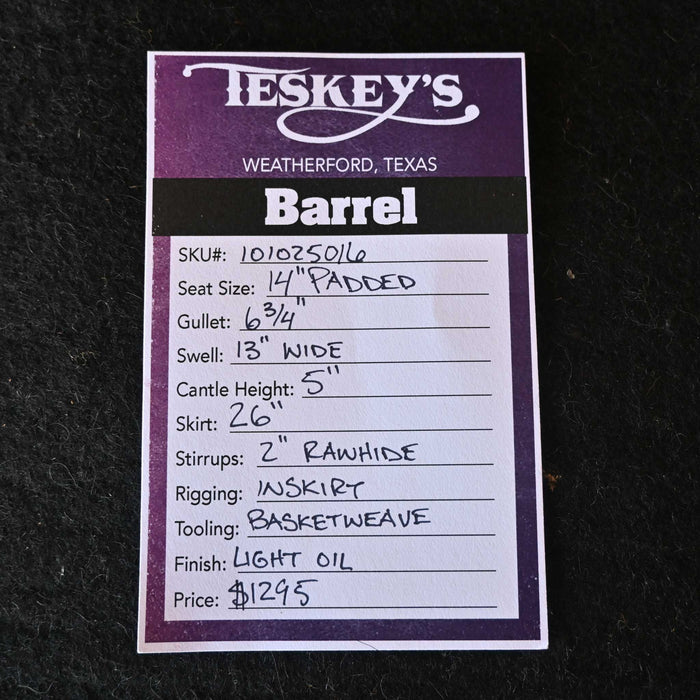 TESKEY'S
WEATHERFORD, TEXAS
Barrel
SKU#: 101025016
Seat Size: 14" PADDED
Gullet: 6 3/4"
Swell: 13" WIDE
Cantle Height: 5"
Skirt: 26"
Stirrups: 2" RAWHIDE
Rigging: INSKIRT
Tooling: BASKETWEAVE
Finish: LIGHT OIL
Price: $1295